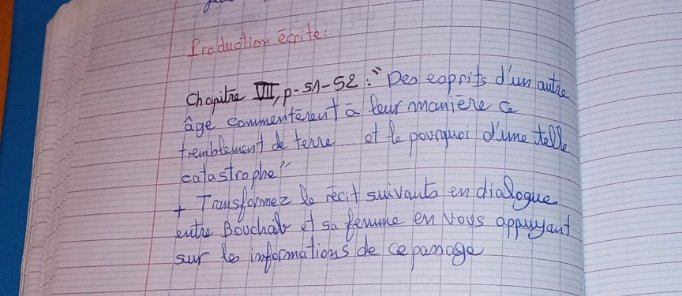 Production écrite:
Chapitre VII, p-51-52 : "Des esprits d'un autre
âge commentèrent à leur manière ce
tremblement de terre... et le pourquoi d'une telle
catastrophe"
+ Transformez le récit suivants en dialogue
entre Bouchaib et sa femme en vous appuyant
sur les informations de ce passage